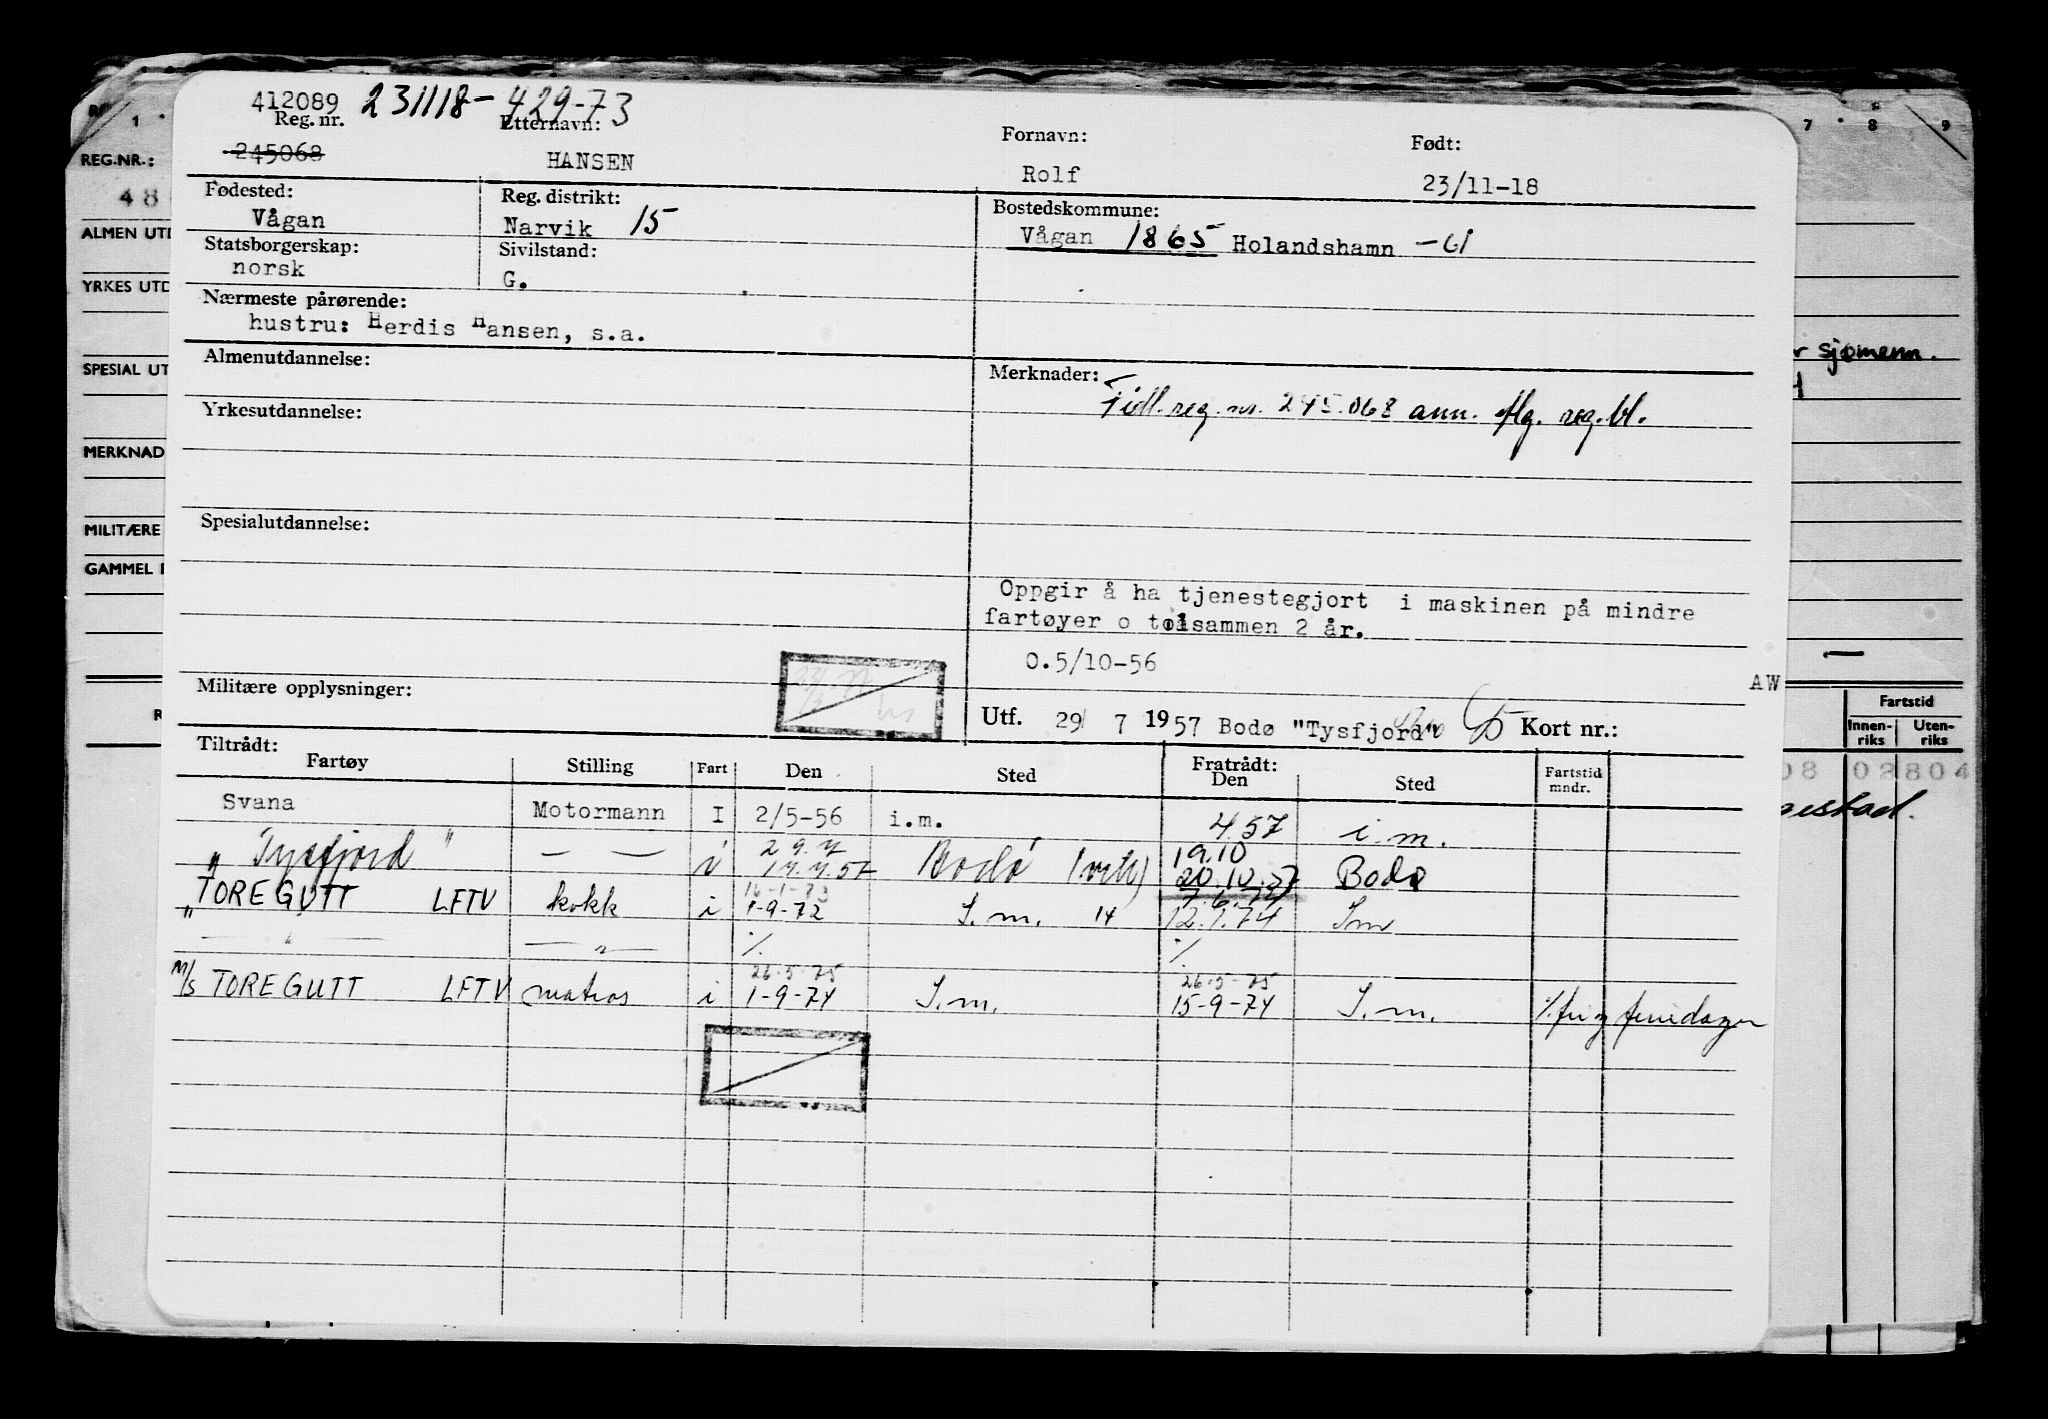 412089 231118-429-73
Reg. nr. Etternavn: Fornavn: Født:
245068 HANSEN Rolf 23/11-18
Fødested: Reg. distrikt: Bostedskommune:
Vågan Narvik 15 Vågan 1865 Holandshamn -61
Statsborgerskap: Sivilstand:
norsk G.
Nærmeste pårørende:
hustru: Herdis Hansen, s.a.
Almenutdannelse: Merknader:
Tidl. reg. nr. 245.068 ann. iflg. reg.bl.
Yrkesutdannelse:
Spesialutdannelse:
Oppgir å ha tjenestegjort i maskinen på mindre
fartøyer o tilsammen 2 år.
O.5/10-56
AW
Militære opplysninger:
Utf. 29 7 1957 Bodø "Tysfjord" Kort nr.:
Tiltrådt: Fratrådt:
Fartøy Stilling Fart Den Sted Den Sted Fartstid
mndr.
Svana Motormann I 2/5-56 i.m. 4.57 i.m.
29.7 19.10
" Tysfjord " — — i 17.7.57 Bodø 20.10.57 Bodø
16-1-73 7.6.74
" TORE GUTT LFTV kokk i 1-9-72 I.m. 14 12.1.74 Im
— " — — " — % %
26-5-75 26-5-75
M/S TORE GUTT LFTV matros i 1-9-74 I.m. 15-9-74 I.m. % fri og feriedager
REG.NR.:
48
ALMEN UTD
YRKES UTD
SPESIAL UT
MERKNAD
MILITÆRE
GAMMEL
R
1
7 8 9
sjømenn.
Fartstid
Innen-
riks Uten-
riks
08 02804